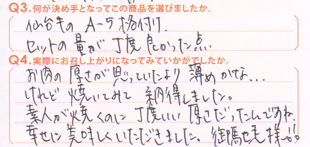 Q3.何が決め手となってこの商品を選びましたか？
仙台牛の A-5 格付け.
セットの量が丁度良かった点
Q4.実際にお召し上がりになってみていかがでしたか。
お肉の厚さが思っていたより 薄めかな…
けれど 焼いてみて 納得しました。
素人が焼くのに 丁度いい 厚さだったんですね.
幸せに 美味しくいただきました。御馳走様!!